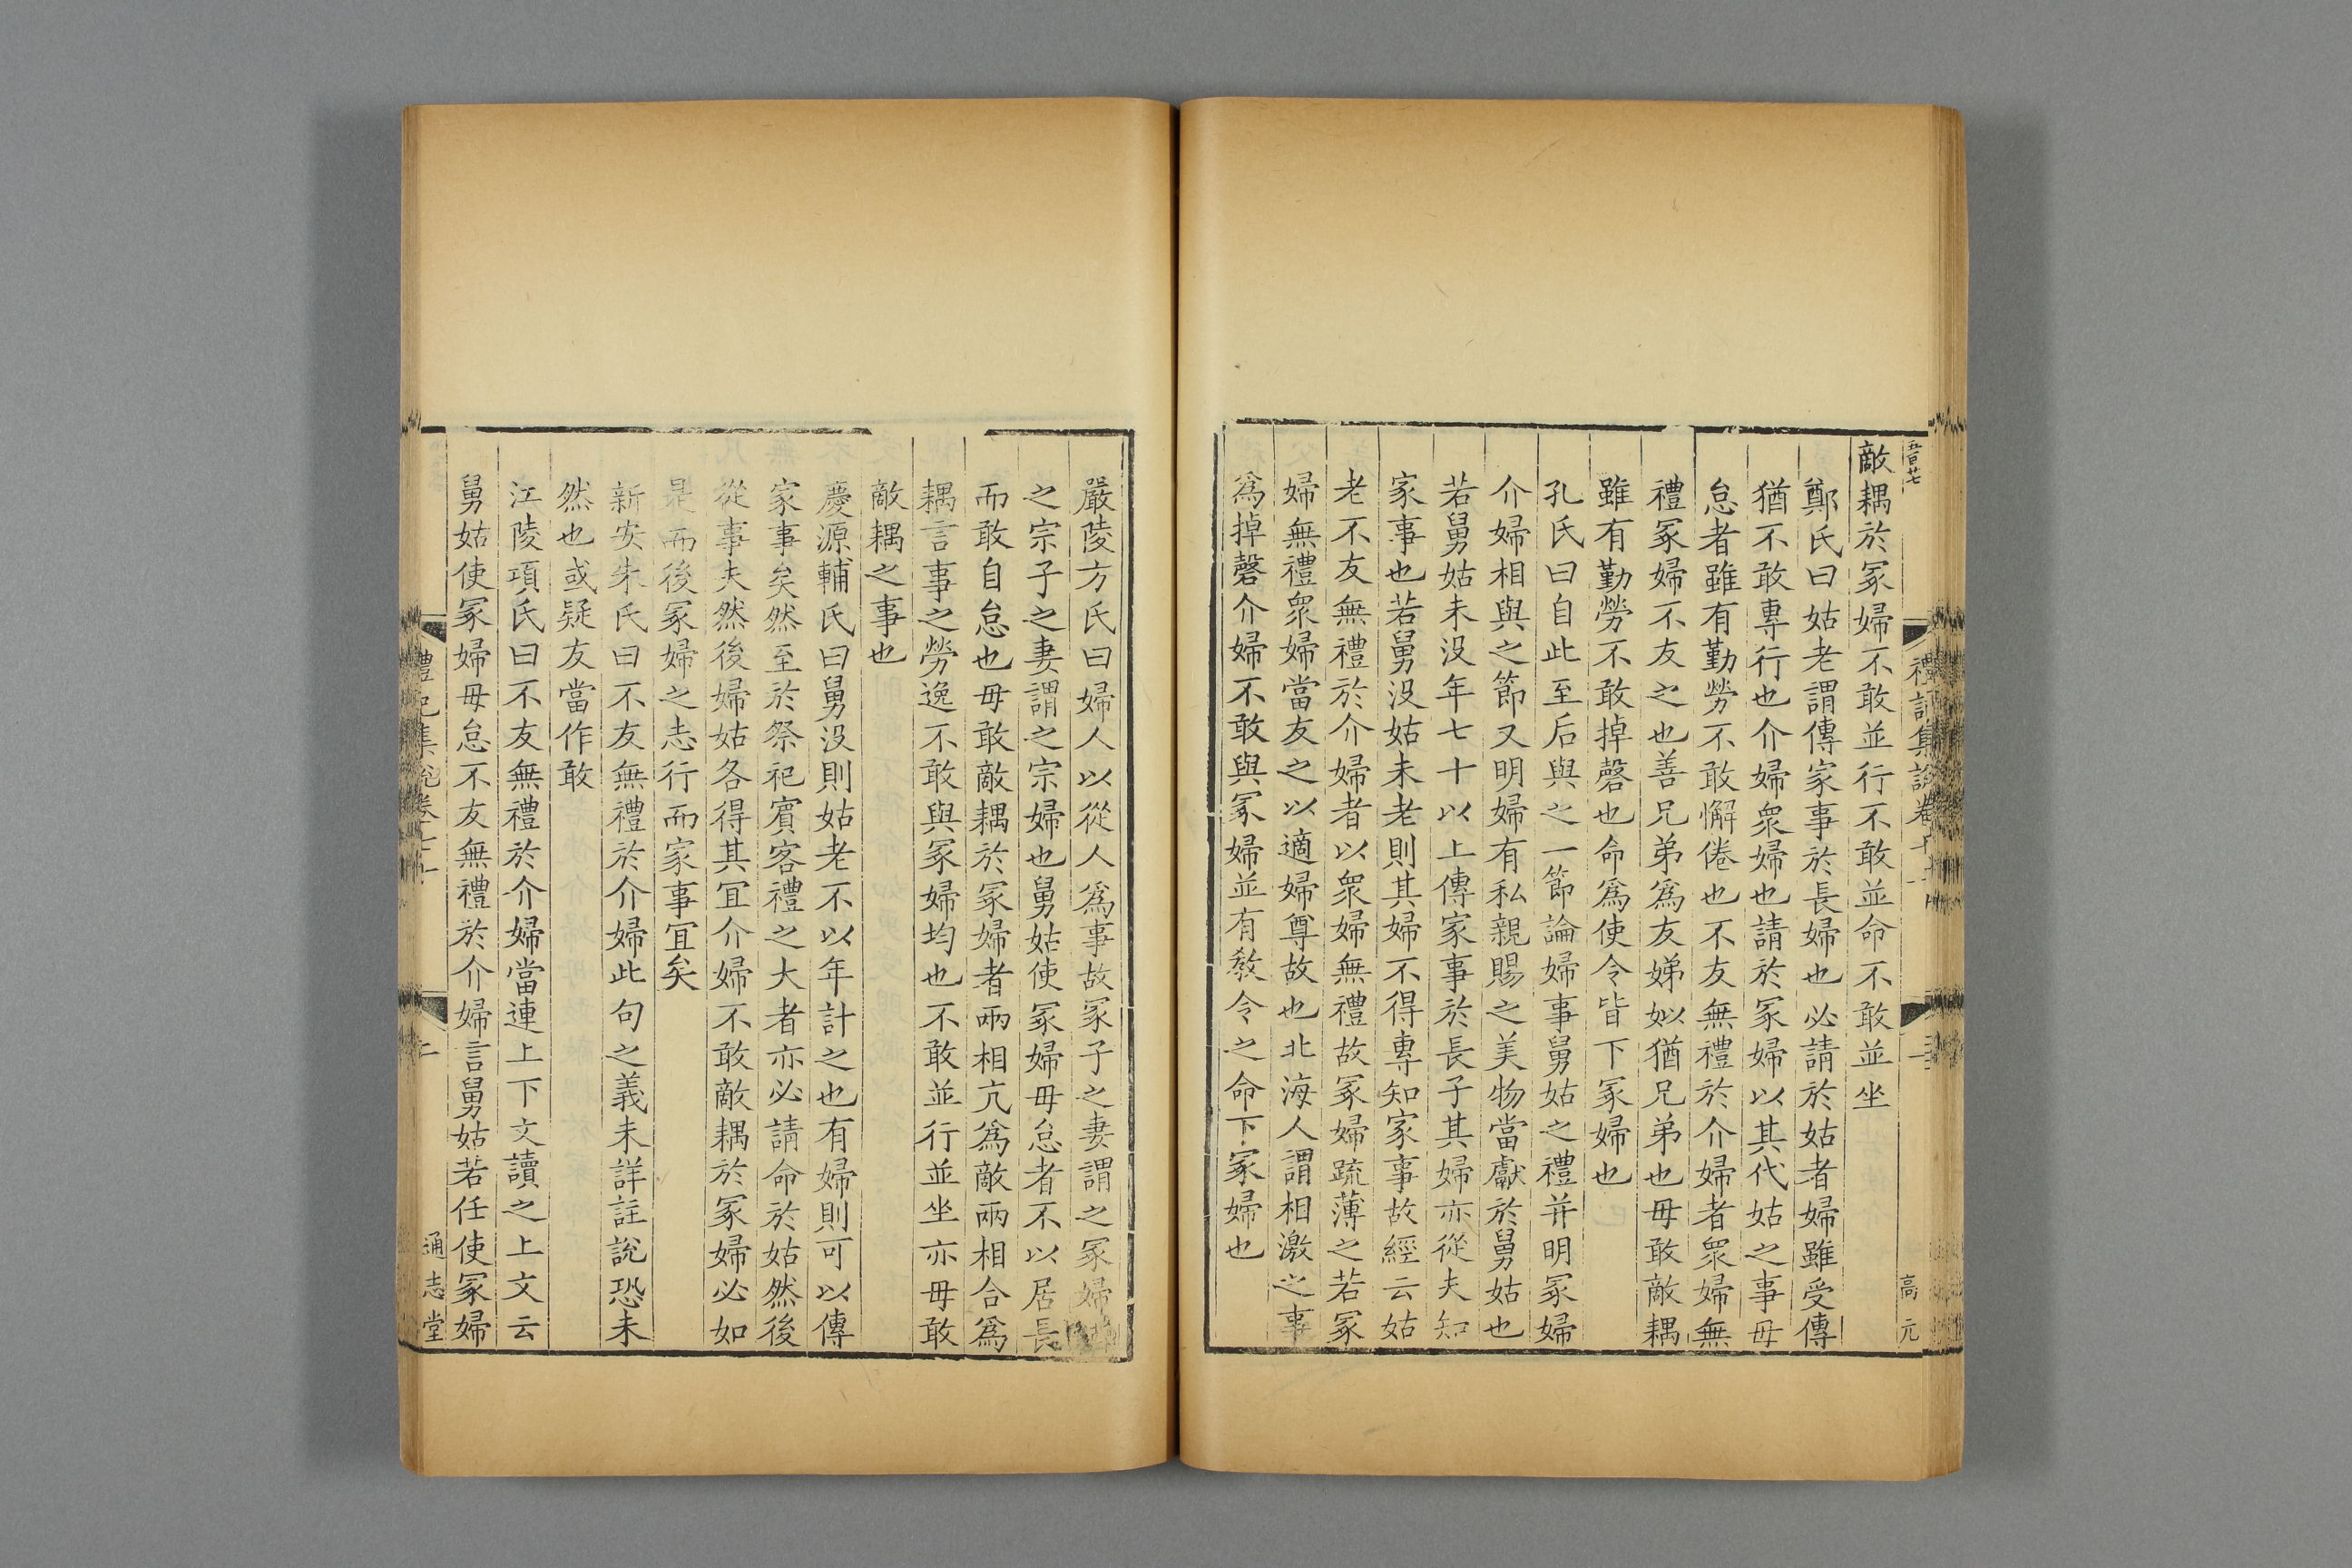 敵耦於冢婦不敢並行不敢並命不敢並坐
鄭氏曰姑老謂傳家事於長婦也必請於姑者婦雖受傳
猶不敢專行也介婦衆婦也請於冢婦以其代姑之事毋
怠者雖有勤勞不敢懈倦也不友無禮於介婦者衆婦無
禮冢婦不友之也善兄弟爲友娣姒猶兄弟也毋敢敵耦
雖有勤勞不敢掉磬也命爲使令皆下冢婦也
孔氏曰自此至后與之一節論婦事舅姑之禮并明冢婦
介婦相與之節又明婦有私親賜之美物當獻於舅姑也
若舅姑未没年七十以上傳家事於長子其婦亦從夫知
家事也若舅没姑未老則其婦不得專知家事故經云姑
老不友無禮於介婦者以衆婦無禮故冢婦疏薄之若冢
婦無禮衆婦當友之以適婦尊故也北海人謂相激之事
爲掉磬介婦不敢與冢婦並有敎令之命下冢婦也
高元
嚴陵方氏曰婦人以從人爲事故冢子之妻謂之冢婦
之宗子之妻謂之宗婦也舅姑使冢婦毋怠者不以居長
而敢自怠也毋敢敵耦於冢婦者兩相亢爲敵兩相合爲
耦言事之勞逸不敢與冢婦均也不敢並行並坐亦毋敢
敵耦之事也
慶源輔氏曰舅没則姑老不以年計之也有婦則可以傳
家事矣然至於祭祀賓客禮之大者亦必請命於姑然後
從事夫然後婦姑各得其宜介婦不敢敵耦於冢婦必如
是而後冢婦之志行而家事宜矣
新安朱氏曰不友無禮於介婦此句之義未詳註說恐未
然也或疑友當作敢
江陵項氏曰不友無禮於介婦當連上下文讀之上文云
舅姑使冢婦毋怠不友無禮於介婦言舅姑若任使冢婦
禮記集說卷七十一
二
通志堂